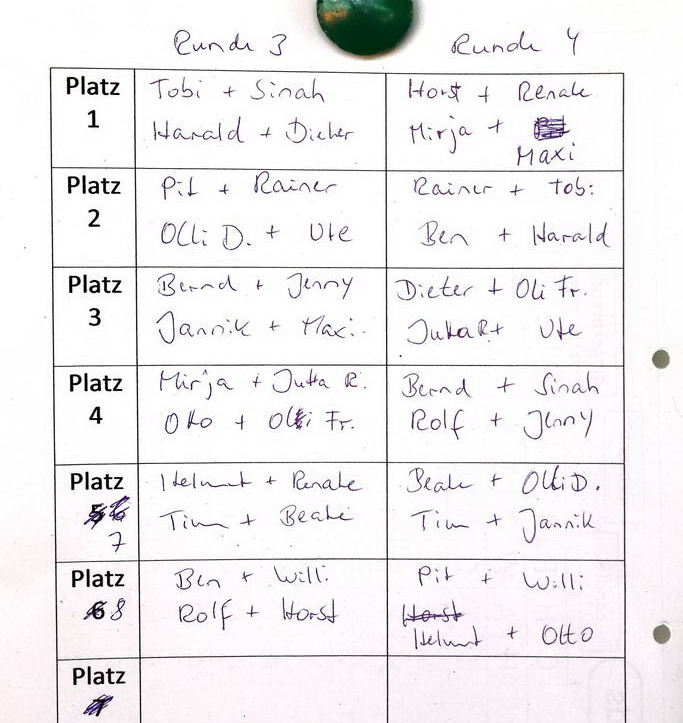 Runde 3 Runde 4
Platz 1
Tobi + Sinah
Harald + Dieter
Horst + Renate
Mirja +
Maxi
Platz 2
Pit + Rainer
Olli D. + Ute
Rainer + Tobi
Ben + Harald
Platz 3
Bernd + Jenny
Jannik + Maxi
Dieter + Oli Fr.
Jutta R + Ute
Platz 4
Mirja + Jutta R.
Otto + Olli Fr.
Bernd + Sinah
Rolf + Jenny
Platz
7
Helmut + Renate
Tim + Beate
Beate + Olli D.
Tim + Jannik
Platz
8
Ben + Willi
Rolf + Horst
Pit + Willi
Horst
Helmut + Otto
Platz